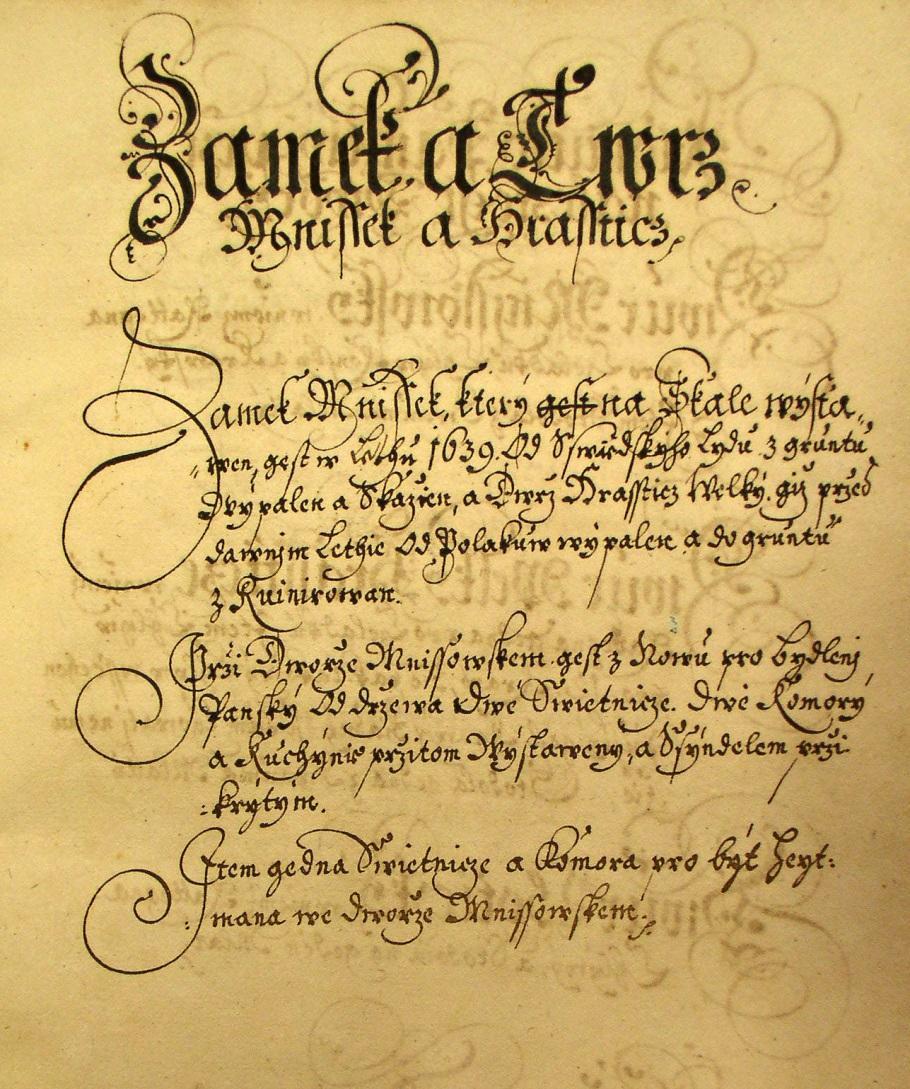 Zamek a Twrz
Mnissek a Hrassticz
Zamek Mnissek, který gest na Skale wýsta„
„wen, gest w Lethu 1639. Od Sswedskýho Lydu z gruntu
Wypalen a Skažien, a Twrz Hrassticz Welký, giž przed
dawnjm Lethie Od Polakuw wýpalen a do gruntu
z Ruinirowan.
Przi Dworze Mnissowskem gest z Nowu pro bydlenj
Panský Od drzewa dwě Swietnicze. dwě Komorý
a Kuchýnie przitom Wýstaweny, a Ssyndelem przi
:krýtým.
Item gedna Swietnicze a Komora pro být heyt:
:mana we dworze Mnissowskem.